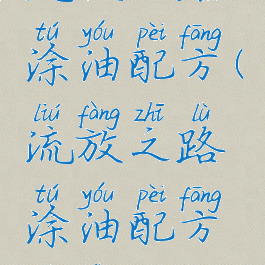 tú yóu pèi fāng
涂油配方(
liú fàng zhī lù
流放之路
tú yóu pèi fāng
涂油配方